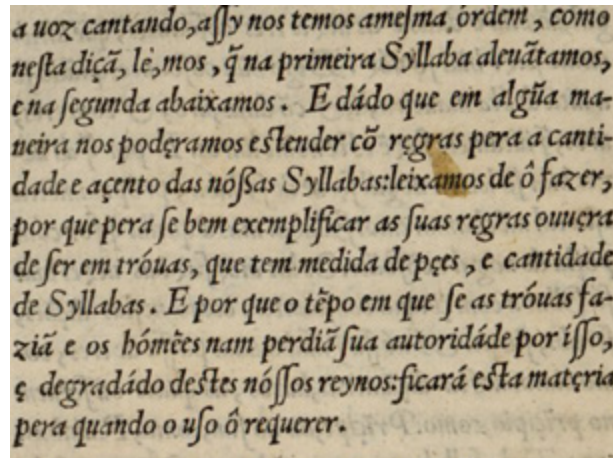 a uoz cantando,aſſy nos temos ameſma órdem , como
neſta diçã, lè,mos , q̃ na primeira Syllaba aleuãtamos,
e na ſegunda abaixamos . E dádo que em algũa ma-
neira nos podęramos eſtender cõ ręgras pera a canti-
dade e açento das nóſſas Syllabas:leixamos de ô fazer,
por que pera ſe bem exemplificar as ſuas ręgras ouuęra
de ſer em tróuas, que tem medida de pęes , e cantidade
de Syllabas . E por que o tẽpo em que ſe as tróuas fa-
ziã e os hómẽes nam perdiã ſua autoridáde por iſſo,
ę degradádo deſtes nóſſos reynos:ficará eſta matęria
pera quando o uſo ô requerer.